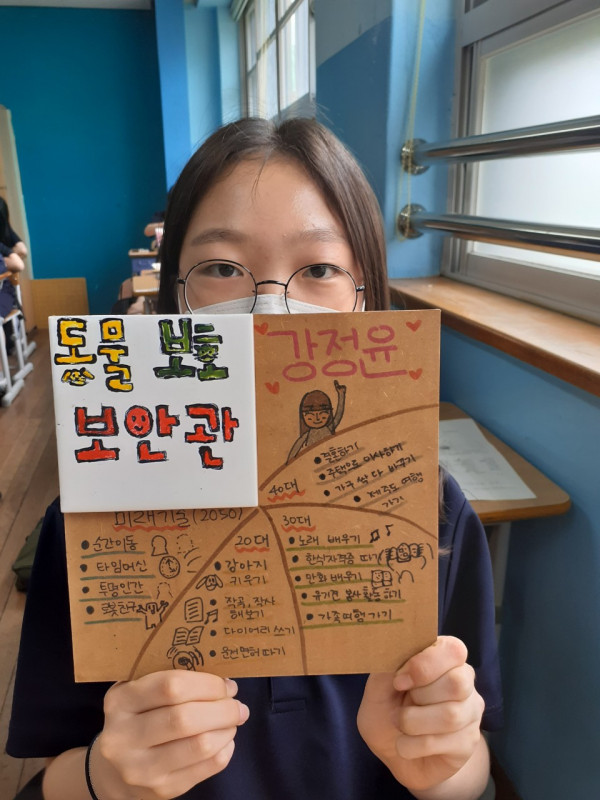 동물 보호
보안관
강정윤
40대
• 독혼하기
• 주택으로 이사하기
• 가구 싹 다 바꾸기
• 제주도 여행
가기
미래기술(2050)
• 순간이동
• 타임머신
• 투명인간
• 로봇친구
20대
• 강아지
키우기
• 작곡, 작사
해보기
• 다이어리 쓰기
• 운전면허 따기
30대
• 노래 배우기
• 한식자격증 따기
• 만화 배우기
• 유기견 봉사활동 하기
• 가족여행 가기